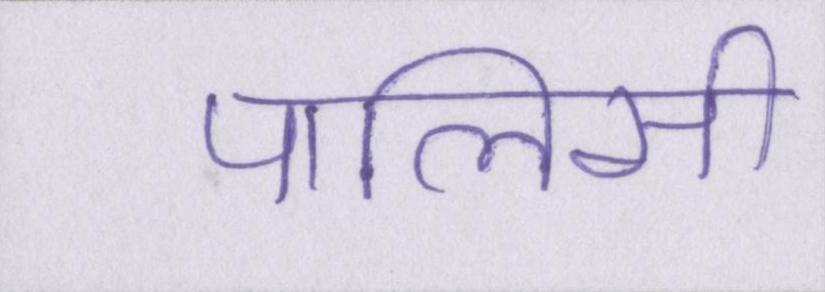 पालिसी